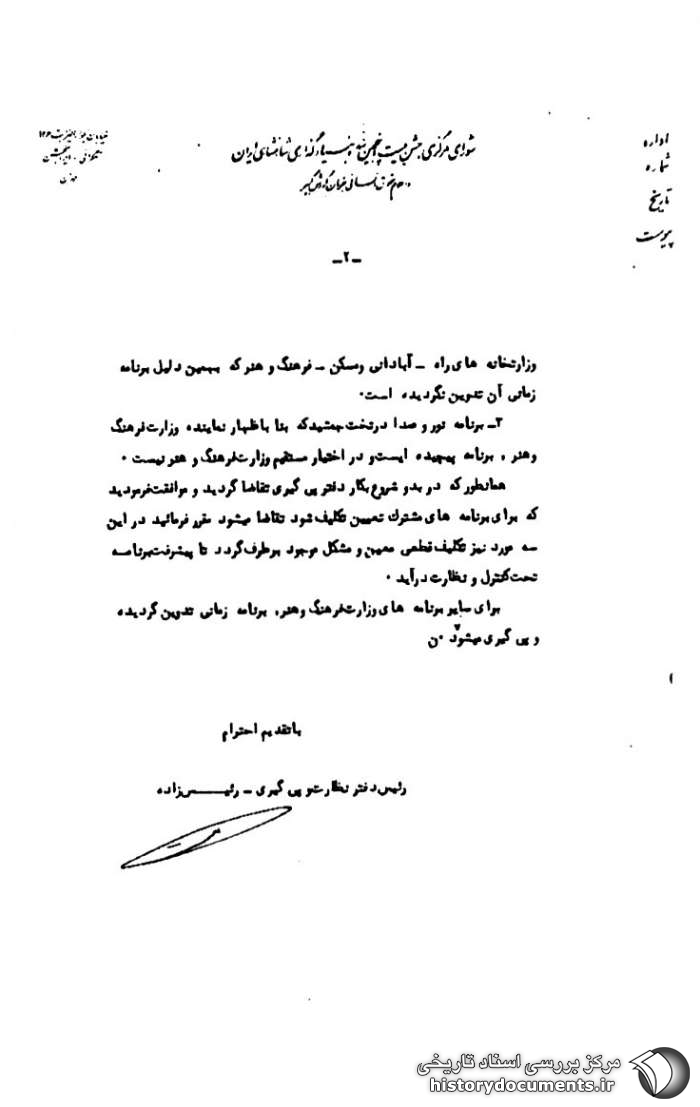 اداره
شماره
تاریخ
پیوست
شورای مرکزی جشن بیست و پنجمین سده بنیادگذاری شاهنشاهی ایران
تهران
-۲-
وزارتخانه های راه - آبادانی ومسکن - فرهنگ و هنر که بهمین دلیل برنامه
زمانی آن تدوین نگردیده است.
۳- برنامه نور و صدا درتخت جمشیدکه بنا باظهار نماینده وزارت فرهنگ
وهنر ، برنامه پیچیده ایست و در اختیار مستقیم وزارت فرهنگ و هنر نیست .
همانطور که در بدو شروع بکار دفتر پی گیری تقاضا گردید و موافقت فرمودید
که برای برنامه های مشترک تعیین تکلیف شود تقاضا میشود مقرر فرمائید در این
سه مورد نیز تکلیف قطعی معین و مشکل موجود برطرف گردد تا پیشرفت برنامه
تحت کنترل و نظارت درآید .
برای سایر برنامه های وزارت فرهنگ وهنر، برنامه زمانی تدوین گردیده
و پی گیری میشود .ن
باتقدیم احترام
رئیس دفتر نظارت و پی گیری - رئیس زاده
مرکز بررسی اسناد تاریخی
historydocuments.ir